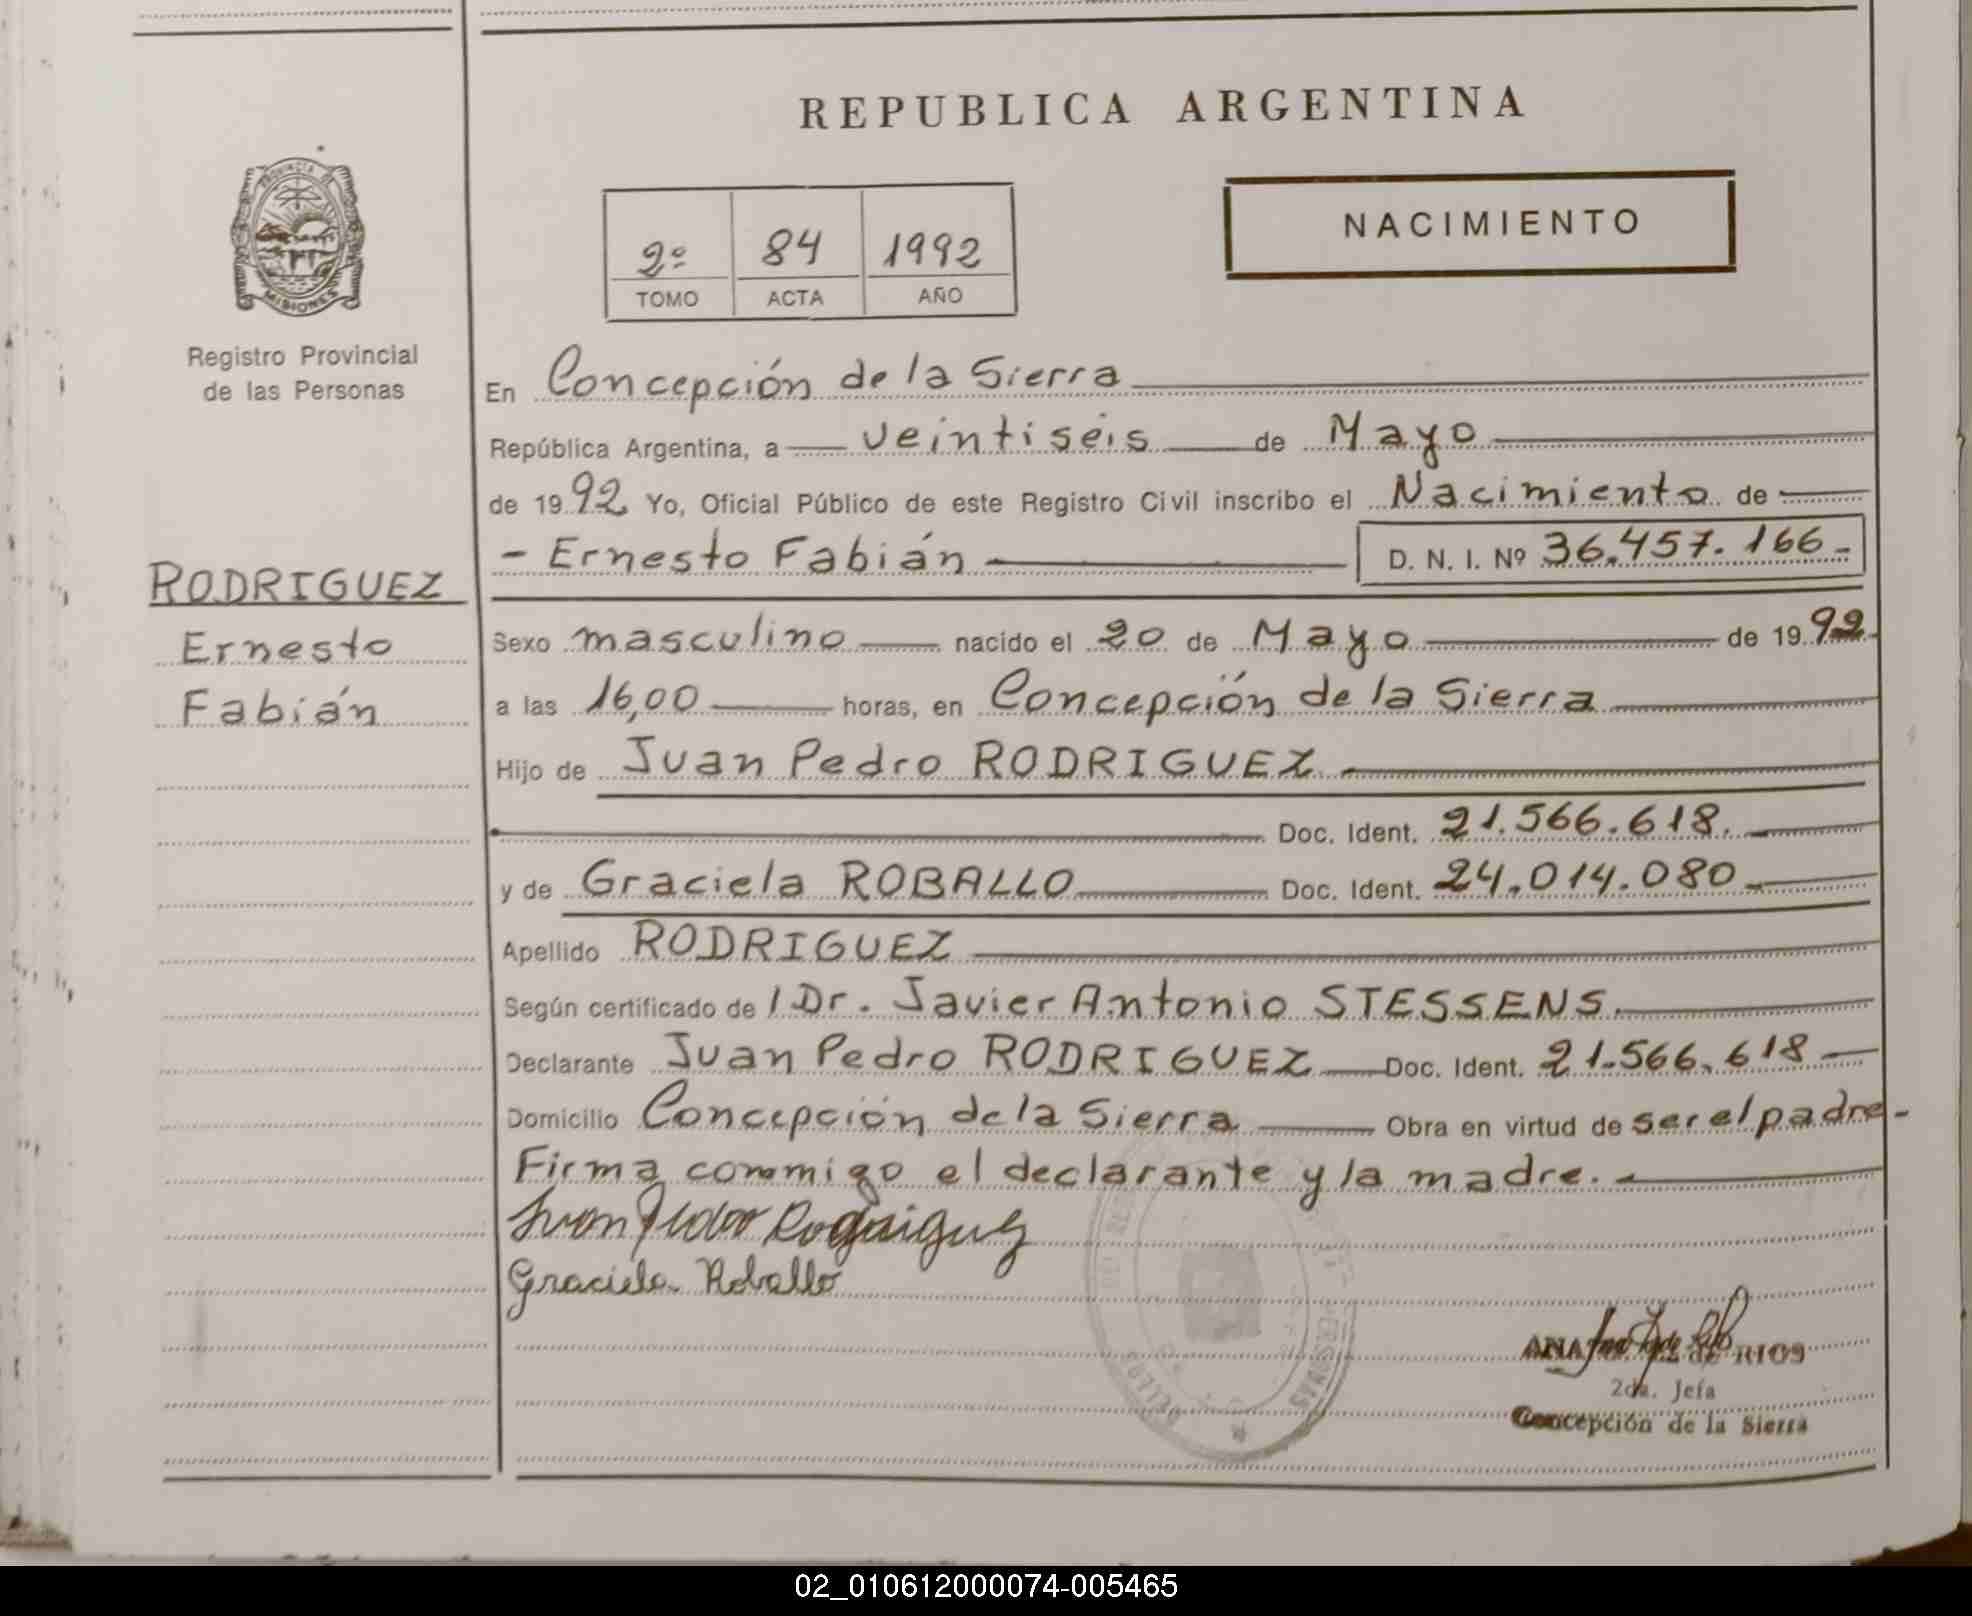 REPUBLICA ARGENTINA
NACIMIENTO
2º 84 1992
TOMO ACTA AÑO
PROVINCIA DE
MISIONES
Registro Provincial
de las Personas
RODRIGUEZ
Ernesto
Fabián
En Concepción de la Sierra
República Argentina, a veintiséis de Mayo
de 1992 Yo, Oficial Público de este Registro Civil inscribo el Nacimiento de
- Ernesto Fabián D. N. I. Nº 36.457.166-
Sexo masculino nacido el 20 de Mayo de 1992
a las 16,00 horas, en Concepción de la Sierra
Hijo de Juan Pedro RODRIGUEZ
Doc. Ident. 21.566.618.
y de Graciela ROBALLO Doc. Ident. 24.014.080
Apellido RODRIGUEZ
Según certificado de / Dr. Javier Antonio STESSENS
Declarante Juan Pedro RODRIGUEZ Doc. Ident. 21.566.618
Domicilio Concepción de la Sierra Obra en virtud de ser el padre-
Firma conmigo el declarante y la madre.
Juan Pedro Rodriguez
Graciela Roballo
ANA de RIOS
2da. Jefa
Concepción de la Sierra
02_010612000074-005465